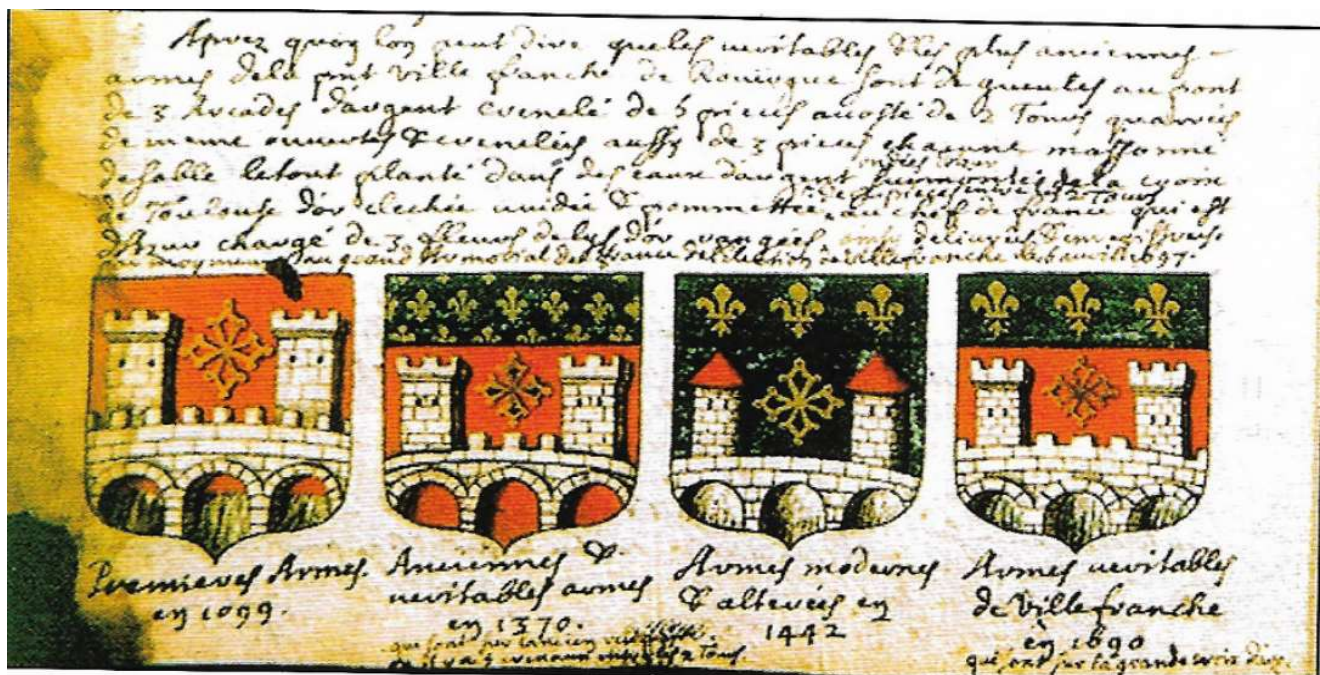 Aprez quoy lon peut dire queles veritables & les plus anciennes
armes dela pnt ville franche de Roüergue sont de gueules au pont
de 3 Arcades d'argent crenelé de 5 pieces acosté de 2 Tours quarrées
de meme ouvertes & crenelées aussy de 3 pieces chacune massonné
de sable le tout planté dans des eaux d'argent surmonté de la croix
de Toulouse d'or clechée vuidée & pommettée, au chef de france qui est
d'azur chargé de 3 fleurs de lys d'or rangées
au grand Armorial de france de l'election de villefranche le 6 avril 1697.
Premieres Armes.
en 1099.
Anciennes &
veritables armes
en 1370.
Armes modernes
& alterées en
1442
Armes veritables
de villefranche
en 1690
qui sont sur la grande croix d'arg.